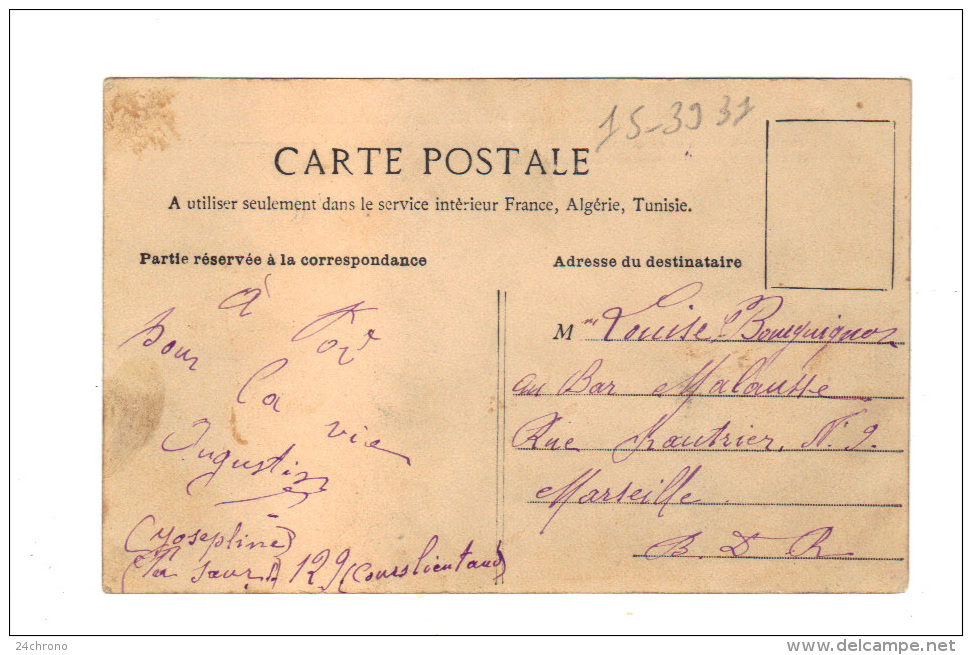 15-39 31
CARTE POSTALE
A utiliser seulement dans le service intèrieur France, Algérie, Tunisie.
Partie réservée à la correspondance
Adresse du destinataire
à Toi
pour
la
vie
Augustin
(Yosephine)
129 (Cours lieutaud)
Mme Louise Bourguignon
au Bar Malausse
Rue N. 9.
Marseille
B. D R
24chrono
www.delcampe.net